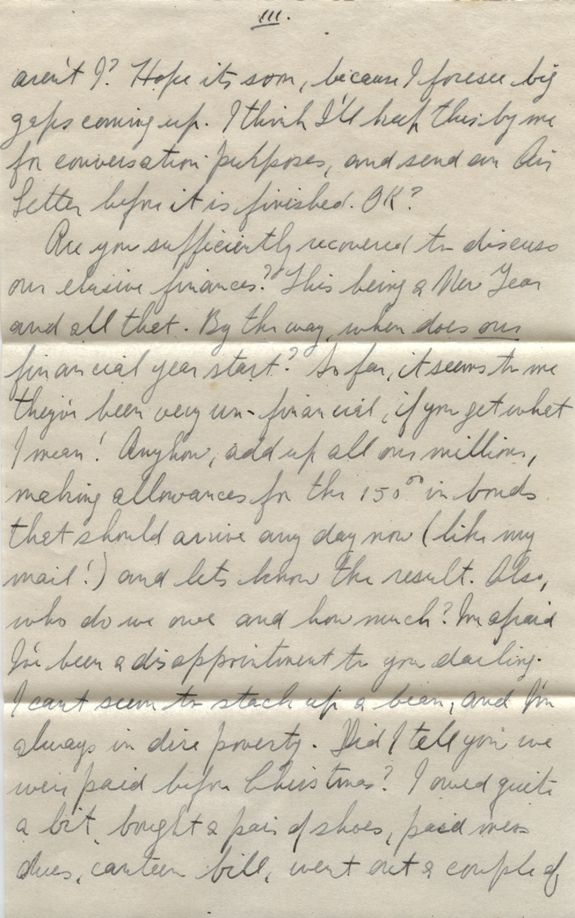 III.
aren't I? Hope its soon, because I foresee big
gaps coming up. I think I'll keep this by me
for conversation purposes, and send an Air
Letter before it is finished. OK?
Are you sufficiently recovered to discuss
our elusive finances? This being a New Year
and all that. By the way, when does our
financial year start? So far, it seems to me
they've been very un-financial, if you get what
I mean! Anyhow, add up all our millions,
making allowances for the 150°° in bonds
that should arrive any day now (like my
mail!) and lets know the result. Also,
who do we owe and how much? I'm afraid
I've been a disappointment to you darling.
I cant seem to stack up a bean, and I'm
always in dire poverty. Did I tell you we
were paid before Christmas? I owed quite
a bit, bought a pair of shoes, paid mess
dues, canteen bill, went out a couple of